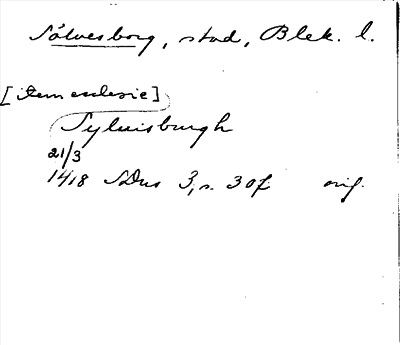 Sölvesborg, stad, Blek. l.
[item ecclesie]
Syluisburgh
21/3
1418 SDns 3, s. 30f orig.